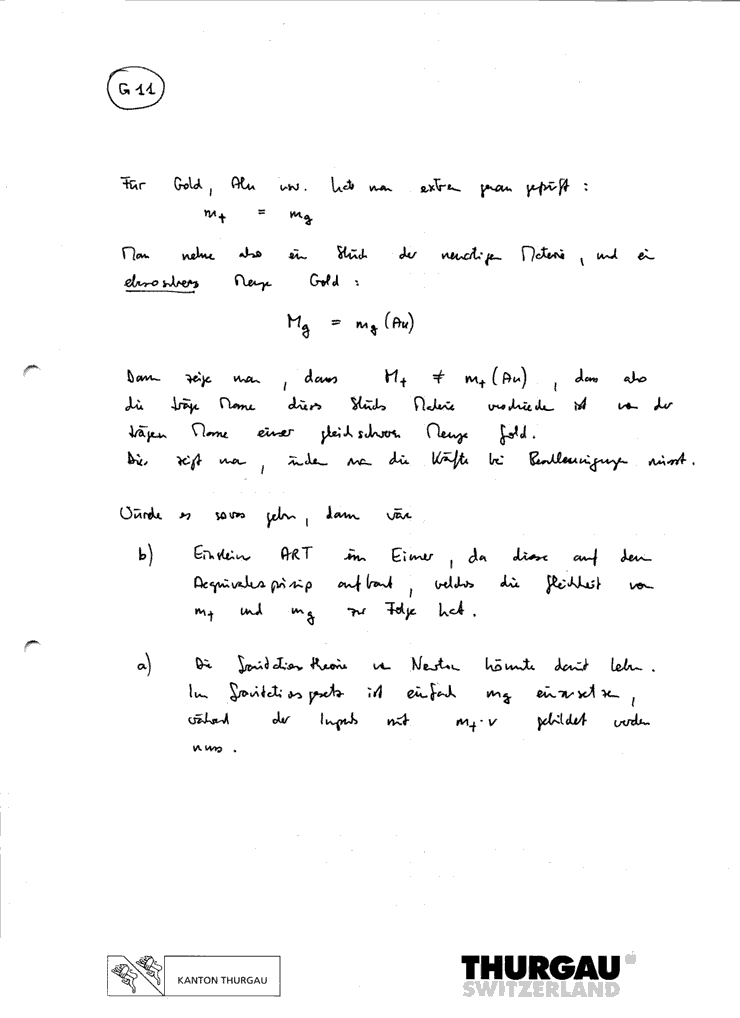 G 11
Für Gold, Alu usw. hat man extrem genau geprüft :
m_t = m_g
Man nehme also ein Stück der neuartigen Materie, und ein
ebensoschwere Menge Gold :
M_g = m_g (Au)
Dann zeige man, dass M_t ≠ m_t (Au), dass also
die träge Masse dieses Stücks Materie verschieden ist von der
trägen Masse einer gleich schweren Menge Gold.
Dies zeigt man, indem man die Kräfte bei Beschleunigungen misst.
Würde es sowas geben, dann wäre
b) Einsteins ART im Eimer, da diese auf dem
Aequivalenzprinzip aufbaut, welches die Gleichheit von
m_t und m_g zur Folge hat.
a) Die Gravitationstheorie von Newton könnte damit leben.
Im Gravitationsgesetz ist einfach m_g einzusetzen,
während der Impuls mit m_t · v gebildet werden
muss.
KANTON THURGAU
THURGAU
SWITZERLAND